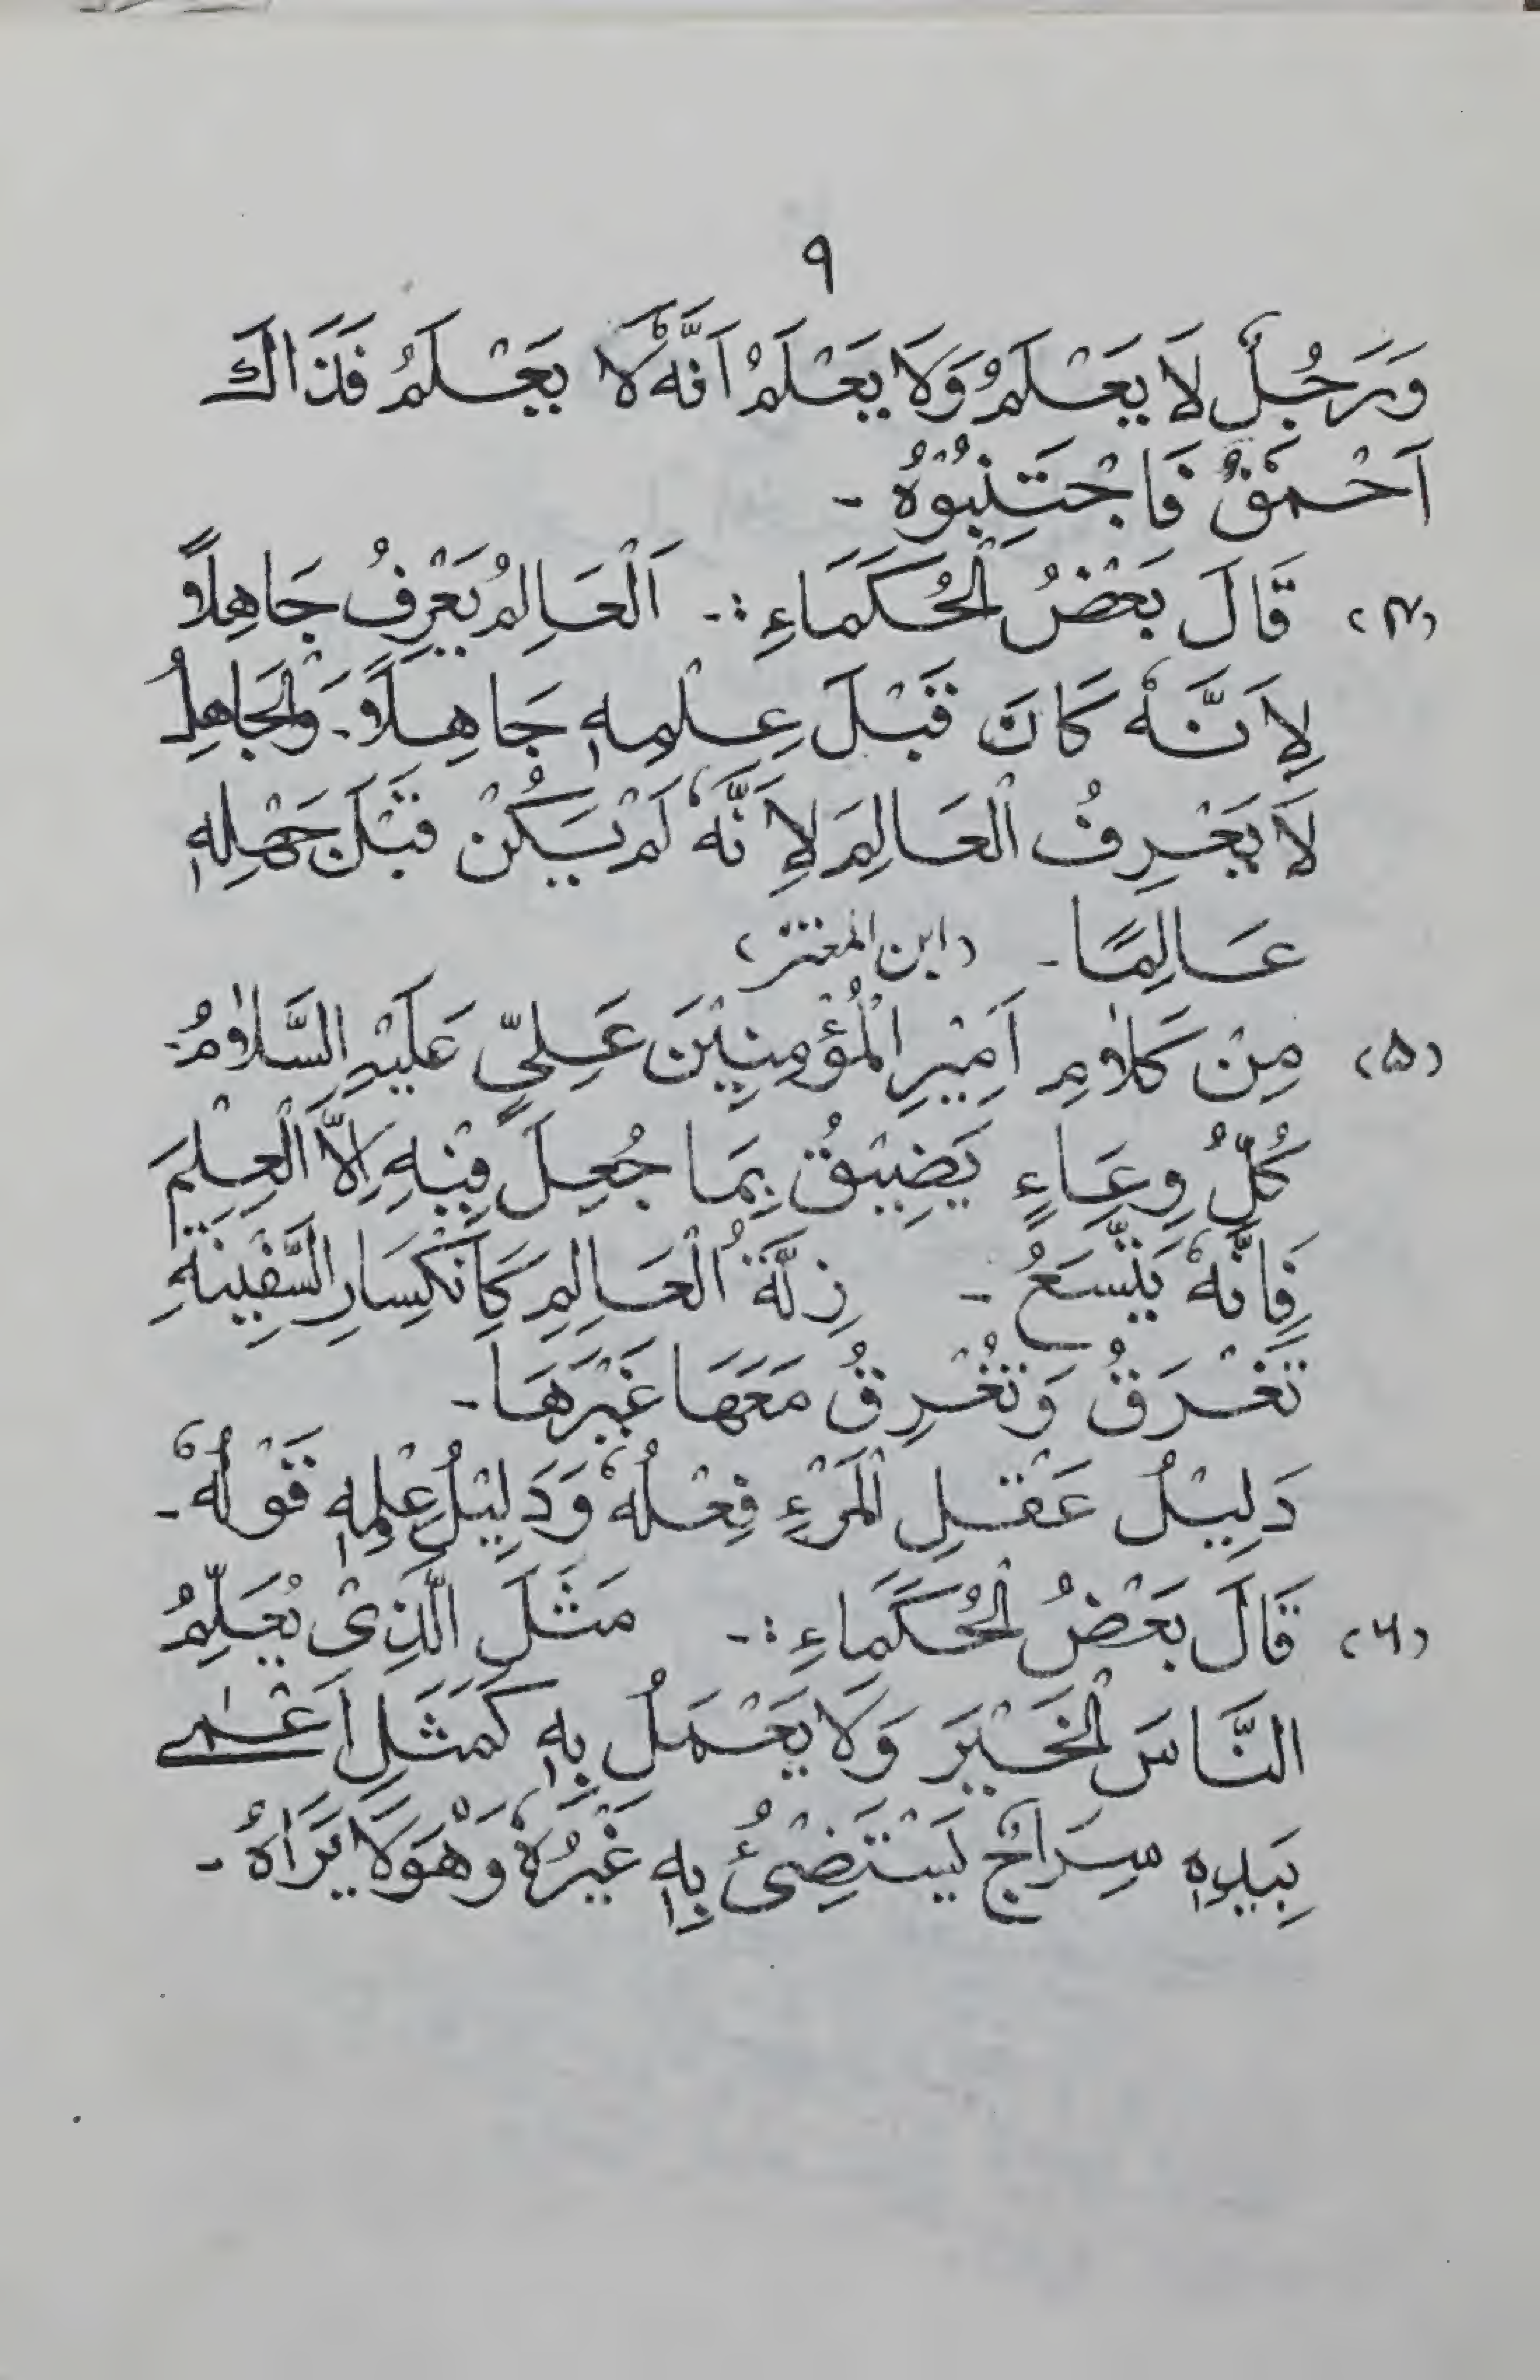 ٩
وَرَجُلٌ لَا يَعْلَمُ وَلَا يَعْلَمُ اَنَّهٗ لَا يَعْلَمُ فَذَاكَ
اَحْمَقٌ فَاجْتَنِبُوْهُ -
(۴) قَالَ بَعْضُ الْحُكَمَاءِ :- اَلْعَالِمُ يَعْرِفُ جَاهِلًا
لِاَنَّهٗ كَانَ قَبْلَ عِلْمِهٖ جَاهِلًا - وَالْجَاهِلُ
لَا يَعْرِفُ الْعَالِمَ لِاَنَّهٗ لَمْ يَكُنْ قَبْلَ جَهْلِهٖ
عَالِمًا - (ابن المعتز)
(۵) مِنْ كَلَامِ اَمِيْرِ الْمُؤْمِنِيْنَ عَلِيٍّ عَلَيْهِ السَّلَامُ:
كُلُّ وِعَاءٍ يَضِيْقُ بِمَا جُعِلَ فِيْهِ اِلَّا الْعِلْمَ
فَاِنَّهٗ يَتَّسَعُ - زِلَّةُ الْعَالِمِ كَاِنْكِسَارِ السَّفِيْنَةِ
تَغْرَقُ وَتُغْرِقُ مَعَهَا غَيْرَهَا -
دَلِيْلُ عَقْلِ الْمَرْءِ فِعْلُهٗ وَدَلِيْلُ عِلْمِهٖ قَوْلُهٗ -
(۶) قَالَ بَعْضُ الْحُكَمَاءِ :- مَثَلَ الَّذِىْ يُعَلِّمُ
النَّاسَ الْخَيْرَ وَلَا يَعْمَلُ بِهٖ كَمَثَلِ اَعْمٰى
بِيَدِهٖ سِرَاجٌ يَسْتَضِىْٔ بِهٖ غَيْرُهٗ وَهْوَ لَا يَرَاهُ -